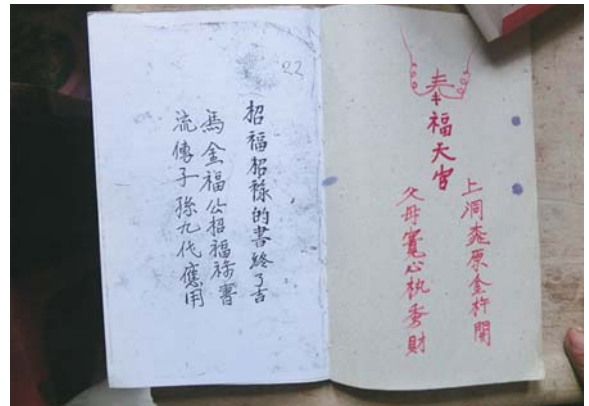 奉福天官
上洞原金杵
父母寬心執秀財
22
招福招祿的書終了吉
金福公招福祿書
流傳子孫九代應用